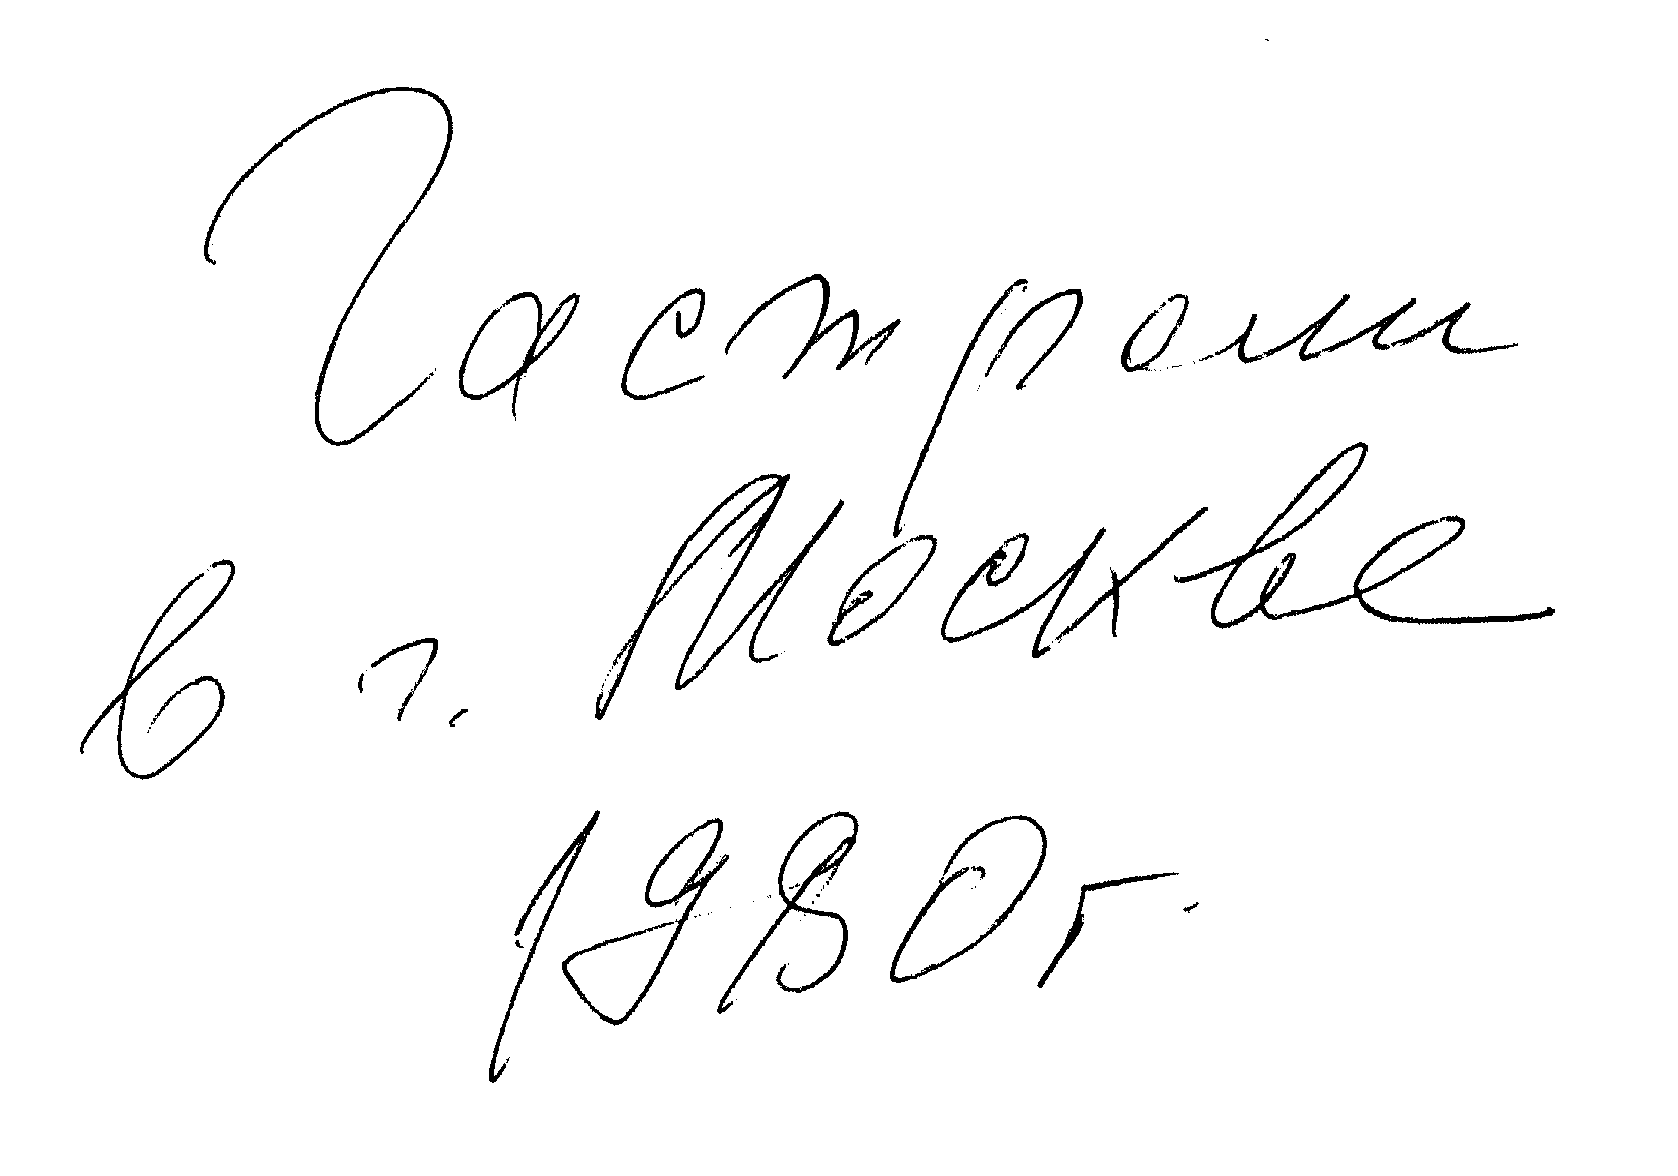 Гастроли
в г. Москве
1980 г.